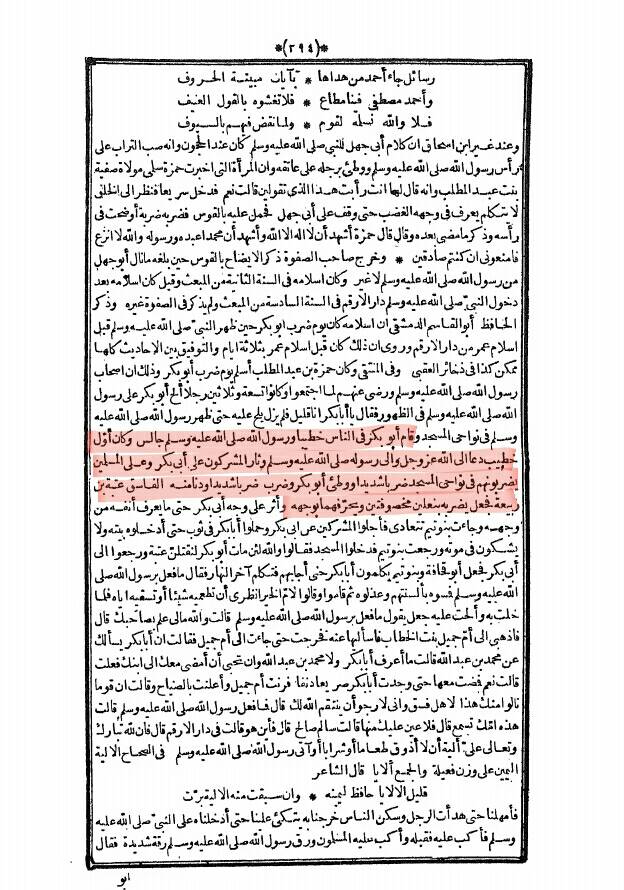 *(٢٩٤)*
رسائل جاء أحمد من هداها * بآيات مبينة الحروف
وأحمد مصطفى فينا مطاع * فلا تغشوه بالقول العنيف
فلا والله نسلمه لقوم * ولما نقض فيهم بالسيوف
وعند غير ابن اسحاق ان كلام أبى جهل للنبي صلى الله عليه وسلم كان عند الحجون وانه صب التراب على
رأس رسول الله صلى الله عليه وسلم ووطئ برجله على عاتقه وان المرأة التى اخبرت حمزة سلمى مولاة صفية
بنت عبد المطلب وانه قال لها انت رأيت هذا الذى تقولين قالت نعم فدخل سريعا فنظر الى الخلق
لا يتكلم يعرف فى وجهه الغضب حتى وقف على أبى جهل فحمل عليه بالقوس فضربه ضربة أوضحت فى
رأسه وذكر ما مضى بعده وقال قال حمزة أشهد أن لا اله الا الله وأشهد أن محمدا عبده ورسوله والله لا انزع
فامنعونى ان كنتم صادقين * وخرج صاحب الصفوة ذكر الايضاح بالقوس حين بلغه ما نال أبو جهل
من رسول الله صلى الله عليه وسلم لا غير وكان اسلامه فى السنة الثانية من المبعث وقيل كان اسلامه بعد
دخول النبى صلى الله عليه وسلم دار الارقم فى السنة السادسة من المبعث ولم يذكر فى الصفوة غيره وذكر
الحافظ أبو القاسم الدمشقى ان اسلامه كان يوم ضرب ابو بكر حين ظهر النبى صلى الله عليه وسلم قبل
اسلام عمر من دار الارقم وروى ان ذلك كان قبل اسلام عمر بثلاثة ايام والتوفيق بين الاحاديث كلها
ممكن كذا فى ذخائر العقبى وفى المنتقى وكان حمزة بن عبد المطلب أسلم يوم ضرب أبو بكر وذلك ان اصحاب
رسول الله صلى الله عليه وسلم ورضى عنهم لما اجتمعوا وكانوا تسعة وثلاثين رجلا ألح أبو بكر على رسول
الله صلى الله عليه وسلم فى الظهور فقال يا أبا بكر انا قليل فلم يزل يلح عليه حتى ظهر رسول الله صلى الله عليه
وسلم فى نواحى المسجد وقام أبو بكر فى الناس خطيبا ورسول الله صلى الله عليه وسلم جالس وكان أول
خطيب دعا الى الله عز وجل والى رسوله صلى الله عليه وسلم وثار المشركون على أبى بكر وعلى المسلمين
يضربونهم فى نواحى المسجد ضربا شديدا ووطئ أبو بكر وضرب ضربا شديدا ودنا منه الفاسق عتبة بن
ربيعة فجعل يضربه بنعلين مخصوفتين ويحرفهما لوجهه وأثر على وجه أبى بكر حتى ما يعرف أنفه من
وجهه وجاءت بنو تيم تتعادى فأجلوا المشركين عن ابى بكر وحملوا أبا بكر فى ثوب حتى أدخلوه بيته ولا
يشكون فى موته ورجعت بنو تيم فدخلوا المسجد فقالوا والله لئن مات أبو بكر لنقتلن عتبة ورجعوا الى
أبى بكر فجعل أبو قحافة وبنو تيم يكلمون أبا بكر حتى أجابهم فتكلم آخر النهار فقال ما فعل برسول الله صلى
الله عليه وسلم فسوه بألسنتهم وعذلوه ثم قاموا وقالوا لام الخير انظرى أن تطعميه شيئا أو تسقيه اياه فلما
خلت به وألحت عليه جعل يقول ما فعل رسول الله صلى الله عليه وسلم قالت والله مالى علم بصاحبك قال
فاذهبى الى أم جميل بنت الخطاب فاسأليها عنه فخرجت حتى جاءت الى أم جميل فقالت ان أبا بكر يسألك
عن محمد بن عبد الله قالت ما أعرف أبا بكر ولا محمد بن عبد الله وان تحبى أن أمضى معك الى ابنك فعلت
قالت نعم فمضت معها حتى وجدت أبا بكر صريعا دنفا فرنت أم جميل وأعلنت بالصياح وقالت ان قوما
نالوا منك هذا لاهل فسق وانى لارجو أن ينتقم الله لك قال فما فعل رسول الله صلى الله عليه وسلم قالت
هذه امك تسمع قال فلا عين عليك منها قالت سالم صالح قال فأين هو قالت فى دار الارقم قال فان لله تبارك
وتعالى على ألية أن لا أذوق طعاما أو شرابا أو آتى رسول الله صلى الله عليه وسلم فى الصحاح الالية
اليمين على وزن فعيلة والجمع ألايا قال الشاعر
قليل الالايا حافظ ليمينه * وان سبقت منه الالية برت
فأمهلنا حتى هدأت الرجل وسكن الناس خرجنا به يتكئ علينا حتى أدخلناه على النبى صلى الله عليه
وسلم فأكب عليه فقبله وأكب عليه المسلمون ورق رسول الله صلى الله عليه وسلم رقة شديدة فقال
ابو